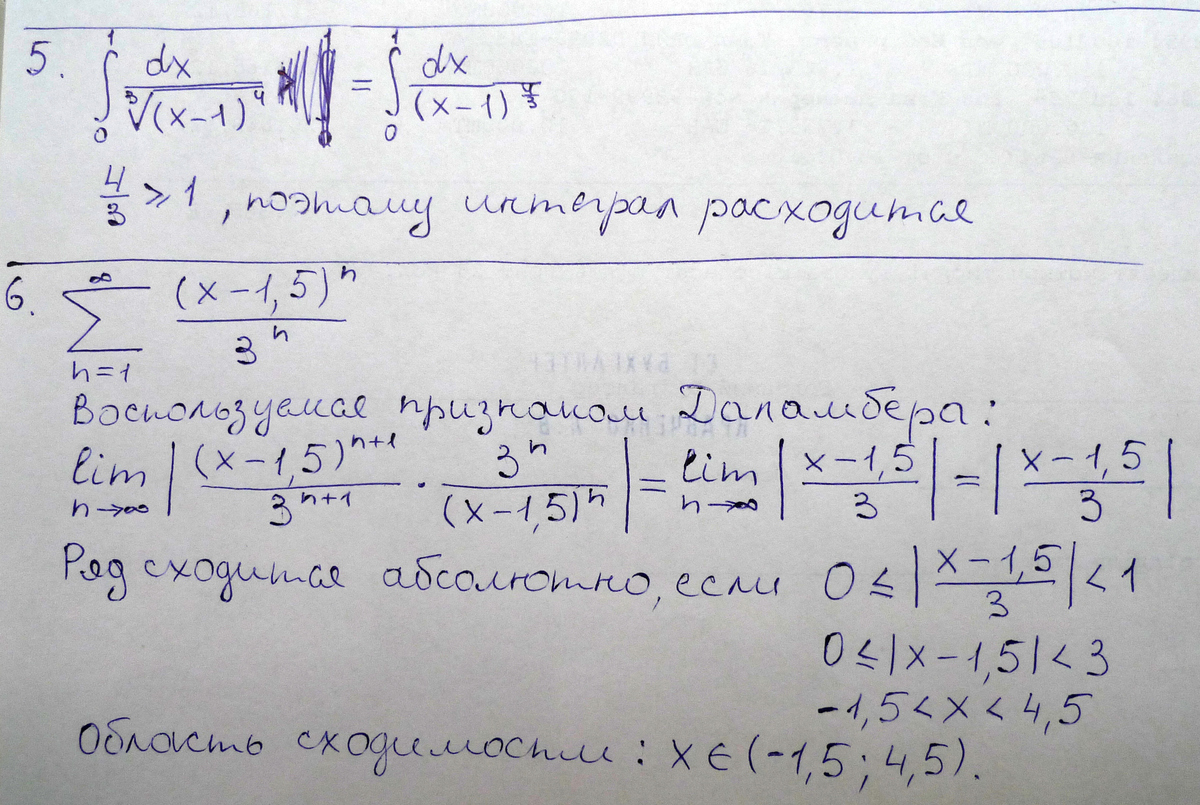 5. ∫₀¹ dx / ∛(x-1)⁴ = ∫₀¹ dx / (x-1)^(4/3)
4/3 ⩾ 1, поэтому интеграл расходится
6. ∑_{n=1}^{∞} (x-1,5)ⁿ / 3ⁿ
Воспользуемся признаком Даламбера:
lim_{n→∞} | (x-1,5)^{n+1} / 3^{n+1} · 3ⁿ / (x-1,5)ⁿ | = lim_{n→∞} | (x-1,5) / 3 | = | (x-1,5) / 3 |
Ряд сходится абсолютно, если 0 ≤ | (x-1,5) / 3 | < 1
0 ≤ |x-1,5| < 3
-1,5 < x < 4,5
Область сходимости: x ∈ (-1,5; 4,5).